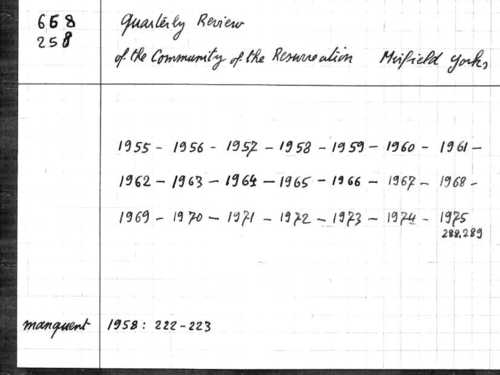 668
258
Quarterly Review
of the Community of the Resurreation Mirfield Yorks
1955 - 1956 - 1957 - 1958 - 1959 - 1960 - 1961 -
1962 - 1963 - 1964 - 1965 - 1966 - 1967 - 1968 -
1969 - 1970 - 1971 - 1972 - 1973 - 1974 - 1975
288.289
manquent 1958 : 222-223